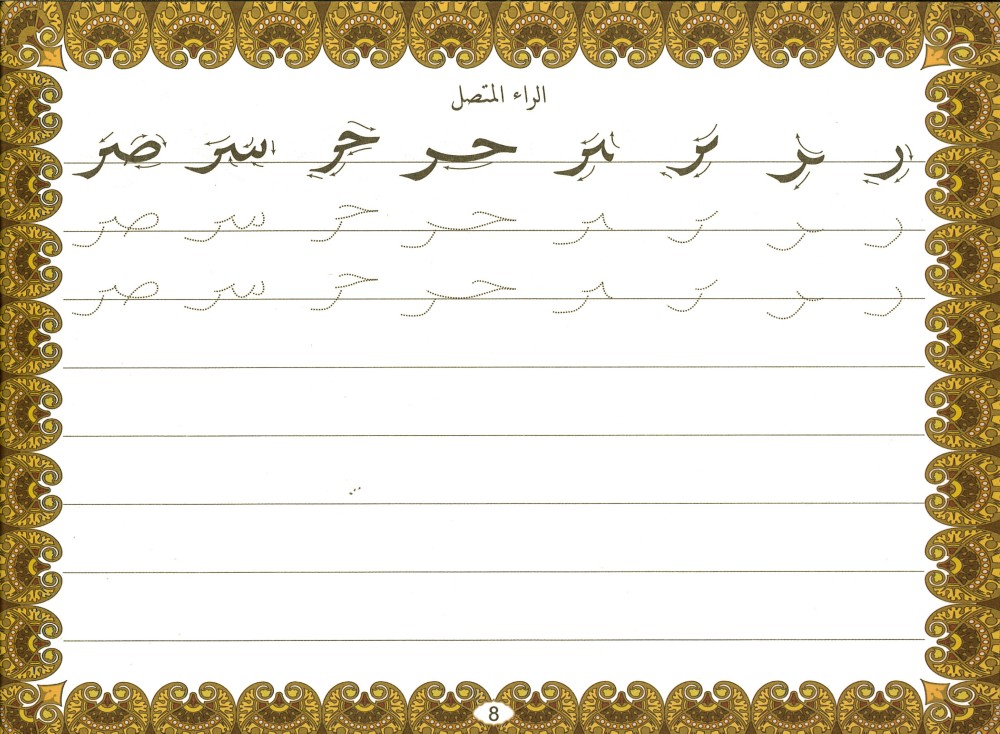 الراء المتصل
ر ىر ىر ىىر حر حر سر صر
ر ىر ىر ىىر حر حر سر صر
ر ىر ىر ىىر حر حر سر صر
8